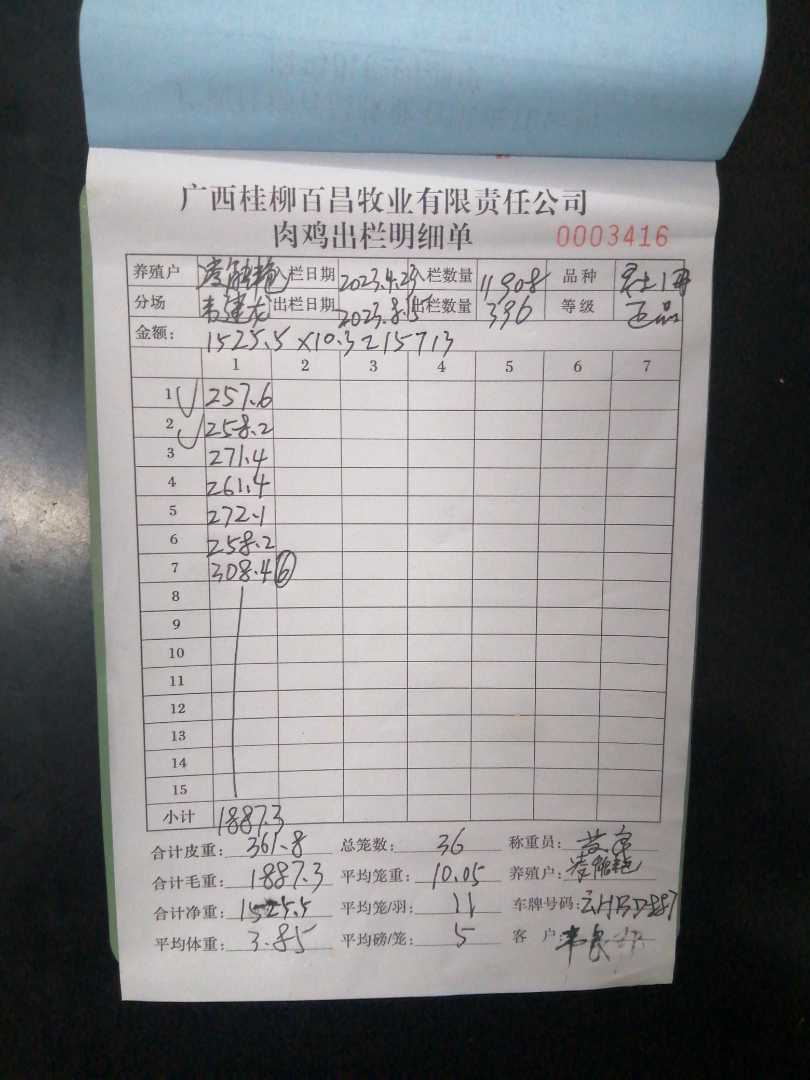 广西桂柳百昌牧业有限责任公司
肉鸡出栏明细单 0003416
养殖户 入栏日期 2023.4.29 入栏数量 11908 品种
分场 韦建龙 出栏日期 2023.8.15 出栏数量 396 等级 正品
金额: 1525.5×10.3=15713
1 2 3 4 5 6 7
1 257.6
2 258.2
3 271.4
4 261.4
5 272.1
6 258.2
7 308.4 6
8
9
10
11
12
13
14
15
小计 1887.3
合计皮重: 361.8 总笼数: 36 称重员:
合计毛重: 1887.3 平均笼重: 10.05 养殖户:
合计净重: 1525.5 平均笼/羽: 11 车牌号码: 云HBD887
平均体重: 3.85 平均磅/笼: 5 客户